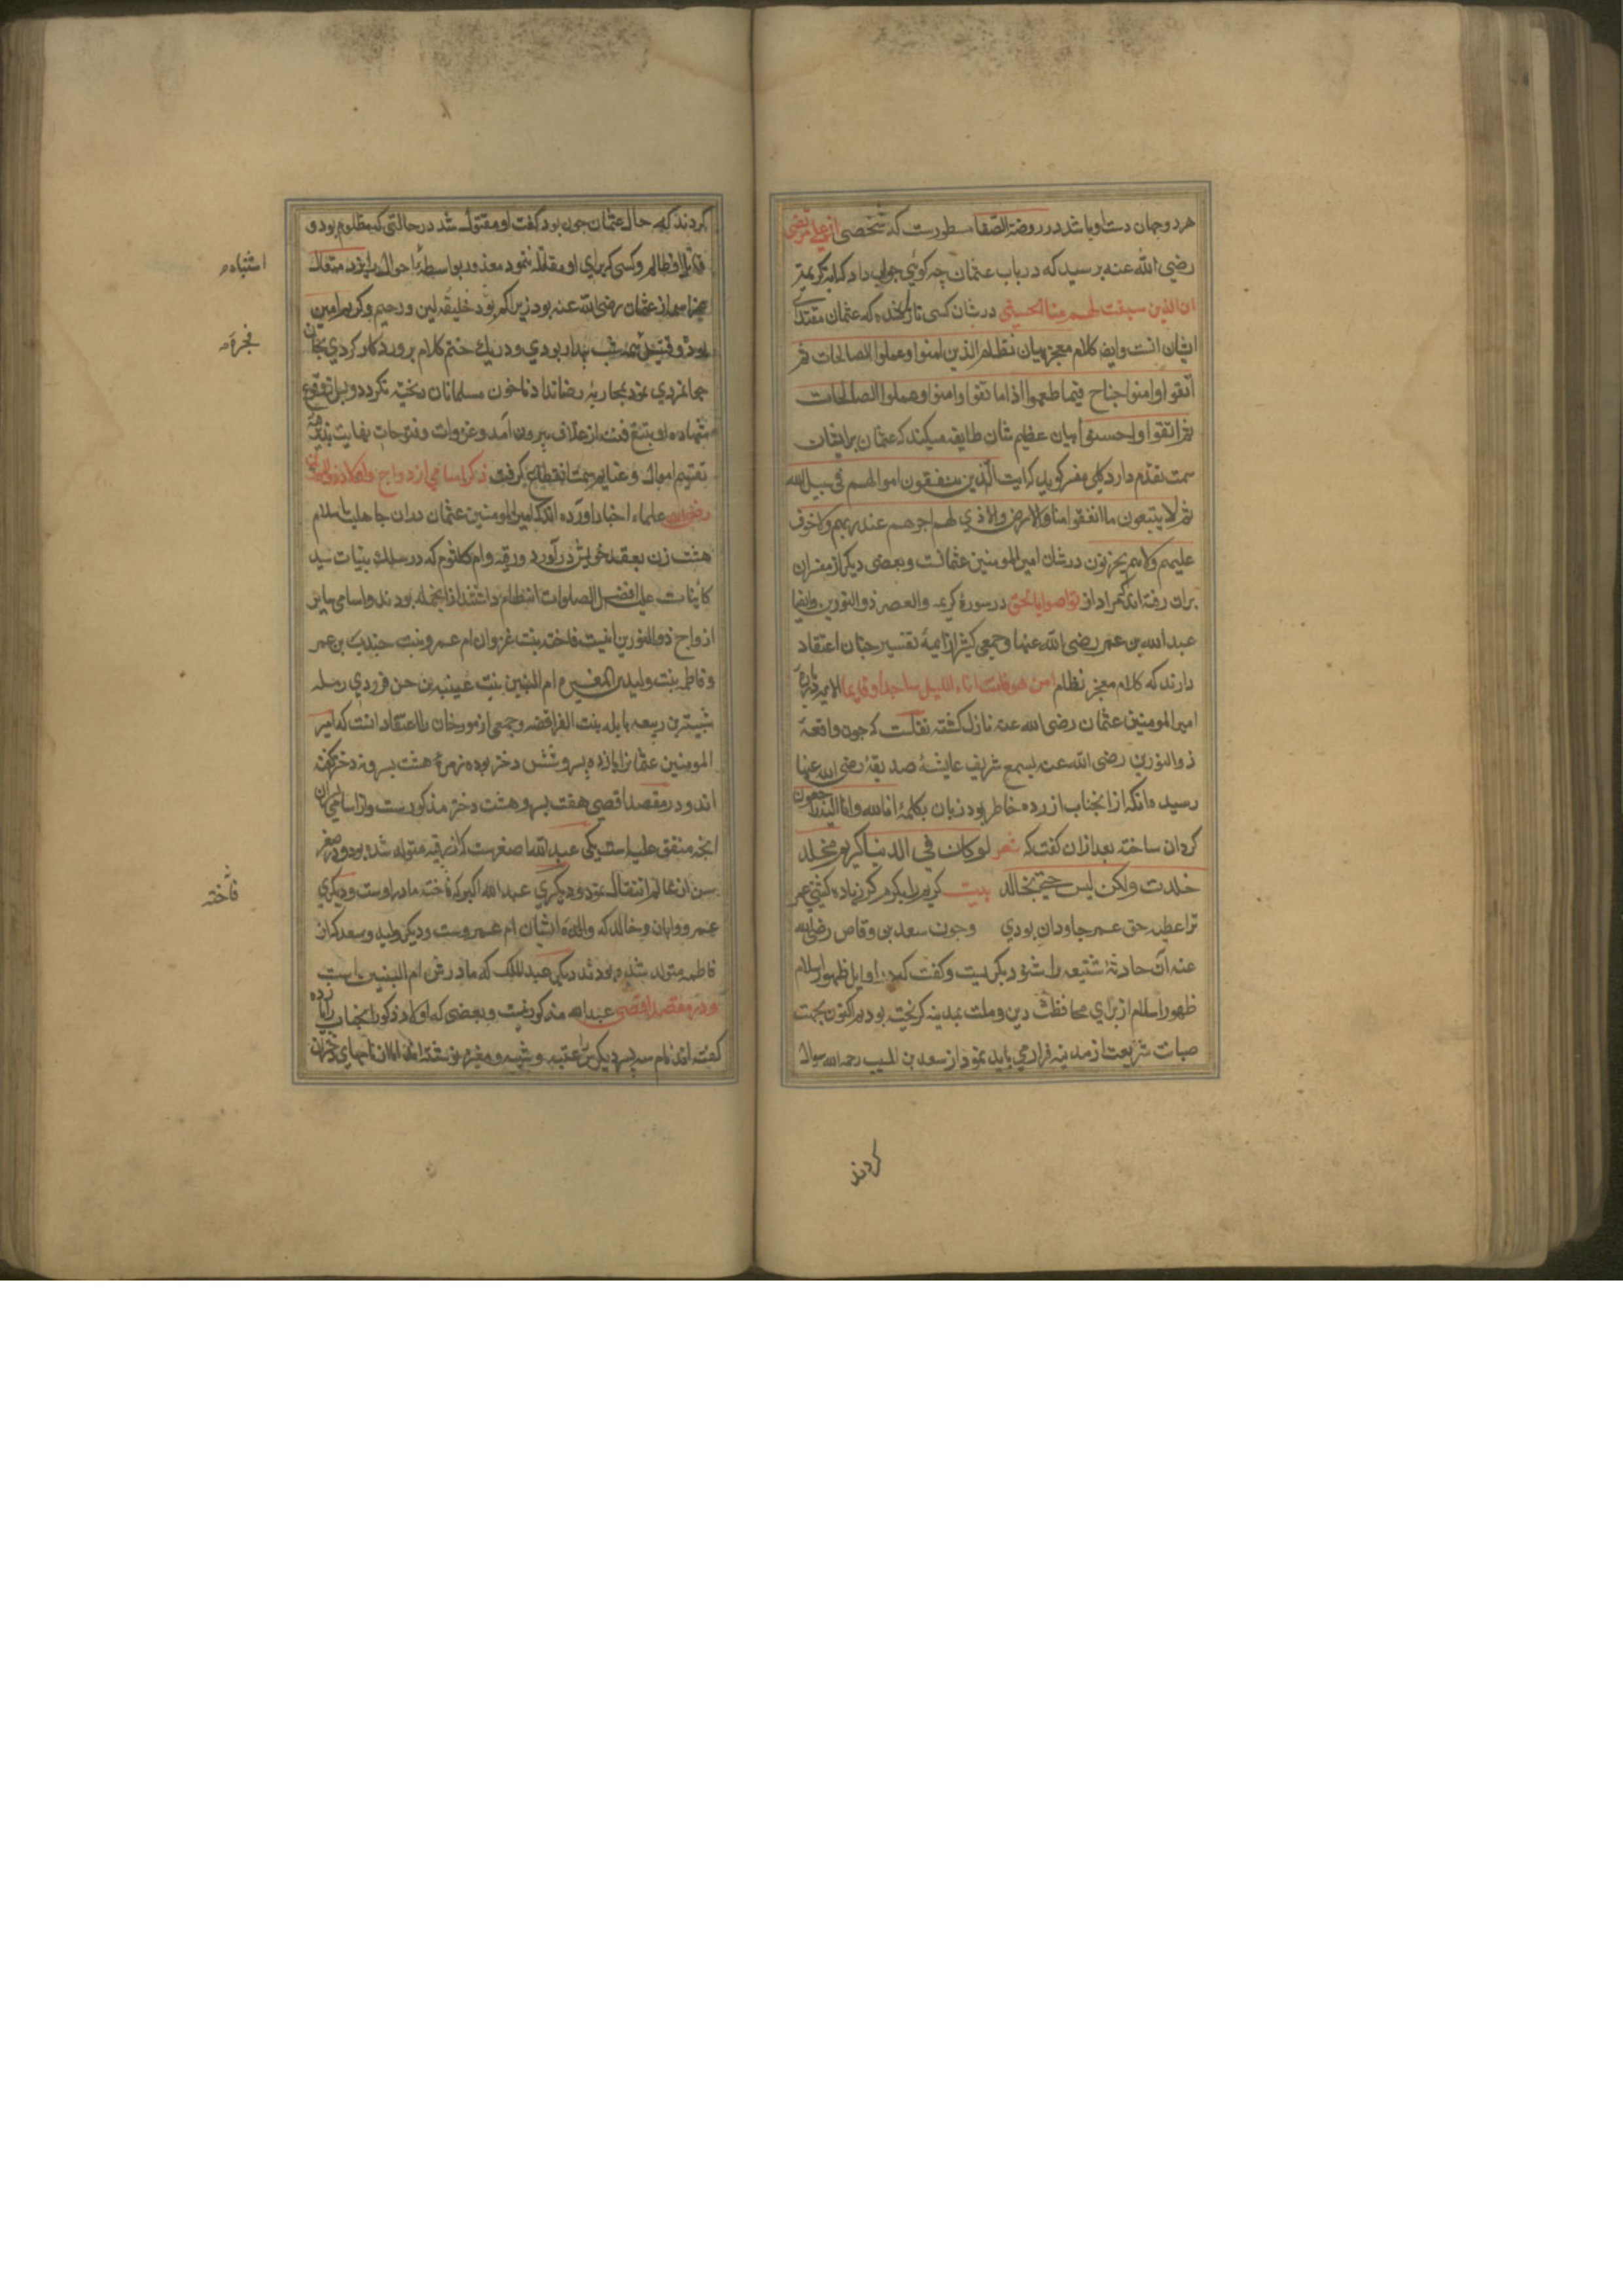 هر دو جهان دست او باشد در روضة الصفا مسطورست که شخصی از علی مرتضی
رضی الله عنه پرسید که در باب عثمان چه کوئی جواب داد که ایه کریمۀ
ان الذین سبقت لهم منا الحسنی در شان کسی نازل شده که عثمان مقتدای
ایشان است و ایضا کلام معجز بیان نظام الذین امنوا وعملوا الصالحات ثم
اتقوا وامنوا جناح فیما طعموا اذا ما تقوا وامنوا وعملوا الصالحات
ثم اتقوا واحسنوا بیان عظیم شان طایفه میکند که عثمان بر ایشان
سمت تقدم دارد کلبی مفسر کوید که ایت الذین ینفقون اموالهم فی سبیل الله
ثم لا یتبعون ما انفقوا منا ولا اذی لهم اجرهم عند ربهم ولا خوف
علیهم ولا هم یحزنون در شان امیرالمومنین عثمانست وبعضی دیکر از مفسران
بران رفته اند که مراد از تواصوا بالحق در سورۀ کریمه والعصر ذو النورین وایضا
عبدالله بن عمر رضی الله عنهما وجمعی کثیر از ایمۀ تفسیر چنان اعتقاد
دارند که کلام معجز نظام امن هو قانت اناء اللیل ساجدا وقایما الایه در بارۀ
امیرالمومنین عثمان رضی الله عنه نازل کشته نقلست که چون واقعۀ
ذوالنورین رضی الله عنه بسمع شریف عایشۀ صدیقه رضی الله عنها
رسید با انکه از انجناب ازرده خاطر بود زبان بکلمۀ انا لله وانا الیه راجعون
کردان ساخته بعد ازان کفت که شعر لو کان فی الدنیا کریم مخلد
خلدت ولکن لیس حی بخالد بیت کریم را بکرم کر زیاده کشتی عمر
ترا عطیۀ حق عمر جاودان بودی وچون سعد بن وقاص رضی الله
عنه ان حادثۀ شنیعه را شنود بکریست وکفت که در اوایل ظهور اسلام
ظهور اسلام از برای محافظت دین وملت بمدینه کریخته بودیم اکنون بجهت
صیانت شریعت از مدینه فرار می باید نمود از سعد بن المسیب رحمه الله سوال
کردند
کردند که حال عثمان چون بود کفت او مقتول شد در حالتی که مظلوم بود و
قاتل او ظالم وکسی که یرای او مقاتله ننمود معذور بواسطۀ احوال ایزد متعال
اشتباه
از عثمان رضی الله عنه بود زیرا که بود خلیفۀ لین ورحیم وکریم امین
شب بیدار بودی ودر یک ختم کلام پروردکار کردی بجان
فجرة
جوانمردی نمود بمحاربه رضا نداد تا خون مسلمانان ریخته نکردد وپس از وقوع
شهادت او تیغ فتنه از غلاف بیرون آمد وغزوات وفتوحات نهایت پذیرفته
تقسیم اموال وغنایم سمت انقطاع کرفت ذکر اسامی ازواج واولاد ذوالنورین
رضی الله علماء اخبار اورده اند که امیرالمومنین عثمان در ان جاهلیت واسلام
هشت زن بعقد خویش در آورد ورقیه وام کلثوم که در سلک بنیات سید
کاینات علیه افضل الصلوات انتظام داشتند ازانجمله بودند واسامی سایر
ازواج ذوالنورین اینست فاخته بنت غزوان ام عمرو بنت جندب بن عمر
وفاطمه بنت ولید بن المغیره ام البنین بنت عیینه بن حصن فزردی رمله
شیبة بن ربیعه نایله بنت الفرافضه وجمعی از مورخان را اعتقاد انست که امیر
المومنین عثمان را یازده پسر وشش دختر بوده وزمرۀ هشت پسر ونه دختر کفته
اند ودر مقصد اقصی هفت پسر وهشت دختر مذکورست واز اسامی پسران
انچه متفق علیه است یکی عبدالله اصغرست که از رقیه متولد شده بود ودر صغر
سن ازین عالم انتقال نمود ودیکری عبدالله اکبر که فاخته مادر اوست ودیکری
فاخته
عمرو وابان وخالد که والدۀ ایشان ام عمروست ودیکر ولید وسعد که از
فاطمه متولد شده بودند دیکر عبدالملک که مادرش ام البنین است
ودر مقصد اقصی عبدالله مذکور نیست وبعضی که اولاد ذکور انجناب را یازده
کفته اند نام سه پسر دیکر را عتبه وشیبه ومغیره نوشته اند اما نامهای دختران